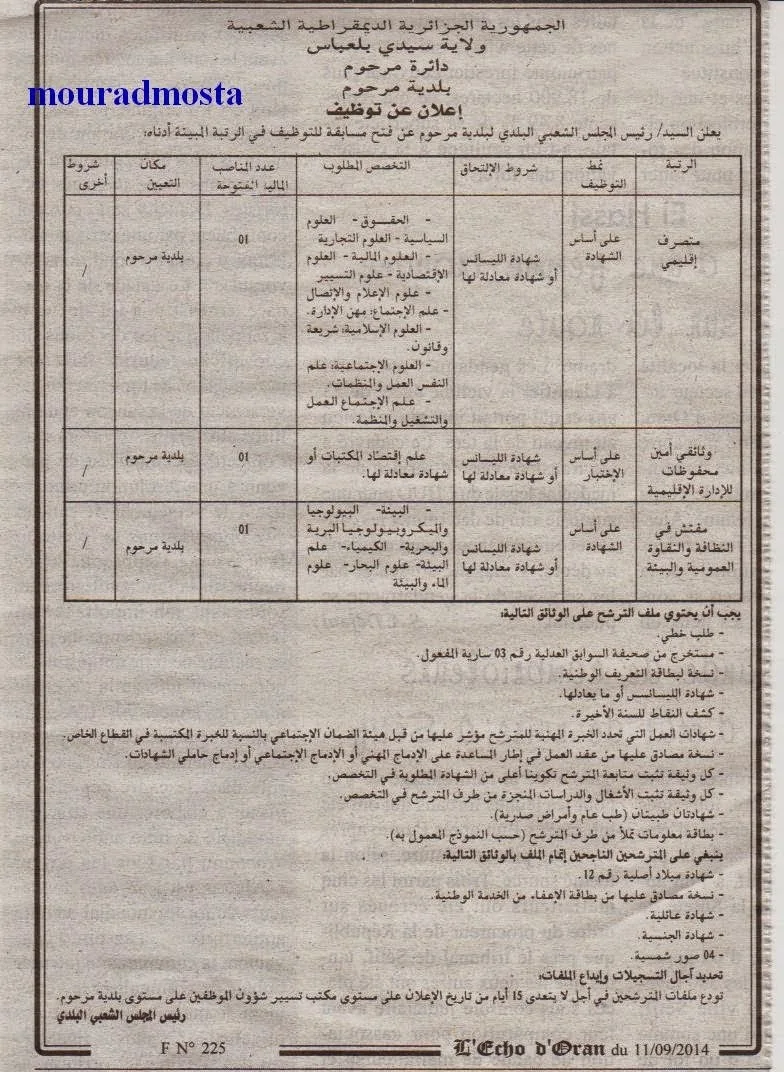 الجمهورية الجزائرية الديمقراطية الشعبية
ولاية سيدي بلعباس
دائرة مرحوم
بلدية مرحوم
mouradmosta
إعلان عن توظيف
يعلن السيد/ رئيس المجلس الشعبي البلدي لبلدية مرحوم عن فتح مسابقة للتوظيف في الرتبة المبينة أدناه:
الرتبة
نمط التوظيف
شروط الإلتحاق
التخصص المطلوب
عدد المناصب المالية المفتوحة
مكان التعيين
شروط أخرى
متصرف
إقليمي
على أساس
الشهادة
شهادة الليسانس
أو شهادة معادلة لها
- الحقوق- العلوم
السياسية - العلوم التجارية
- العلوم المالية - العلوم
الإقتصادية - علوم التسيير
- علوم الإعلام والإتصال
- علم الإجتماع: مهن الإدارة.
- العلوم الإسلامية: شريعة
وقانون.
- العلوم الإجتماعية: علم
النفس العمل والمنظمات.
- علم الإجتماع العمل
والتشغيل والمنظمة.
01
بلدية مرحوم
/
وثائقي أمين
محفوظات
للإدارة الإقليمية
على أساس
الإختبار
شهادة الليسانس
أو شهادة معادلة لها
علم إقتصاد المكتبات أو
شهادة معادلة لها.
01
بلدية مرحوم
/
مفتش في
النظافة والنقاوة
العمومية والبيئة
على أساس
الشهادة
شهادة الليسانس
أو شهادة معادلة لها
- البيئة- البيولوجيا
والميكروبيولوجيا البرية
والبحرية- الكيمياء- علم
البيئة- علوم البحار- علوم
الماء والبيئة
01
بلدية مرحوم
/
يجب أن يحتوي ملف الترشح على الوثائق التالية:
- طلب خطي.
- مستخرج من صحيفة السوابق العدلية رقم 03 سارية المفعول.
- نسخة لبطاقة التعريف الوطنية.
- شهادة الليسانس أو ما يعادلها.
- كشف النقاط للسنة الأخيرة.
- شهادات العمل التي تحدد الخبرة المهنية للمترشح مؤشر عليها من قبل هيئة الضمان الإجتماعي بالنسبة للخبرة المكتسبة في القطاع الخاص.
- نسخة مصادق عليها من عقد العمل في إطار المساعدة على الإدماج المهني أو الإدماج الإجتماعي أو إدماج حاملي الشهادات.
- كل وثيقة تثبت متابعة المترشح تكوينا أعلى من الشهادة المطلوبة في التخصص.
- كل وثيقة تثبت الأشغال والدراسات المنجزة من طرف المترشح في التخصص.
- شهادتان طبيتان (طب عام وأمراض صدرية).
- بطاقة معلومات تملأ من طرف المترشح (حسب النموذج المعمول به).
ينبغي على المترشحين الناجحين إتمام الملف بالوثائق التالية:
- شهادة ميلاد أصلية رقم 12.
- نسخة مصادق عليها من بطاقة الإعفاء من الخدمة الوطنية.
- شهادة عائلية.
- شهادة الجنسية.
- 04 صور شمسية.
تحديد آجال التسجيلات وإيداع الملفات:
تودع ملفات المترشحين في أجل لا يتعدى 15 أيام من تاريخ الإعلان على مستوى مكتب تسيير شؤون الموظفين على مستوى بلدية مرحوم.
رئيس المجلس الشعبي البلدي
F N° 225
L'Echo d'Oran du 11/09/2014